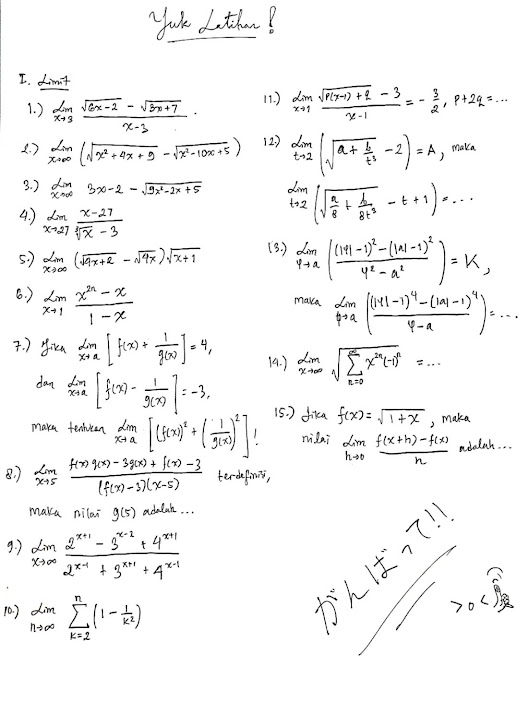 Yuk Latihan!
I. Limit
1.) Lim x→3 (√(6x-2) - √(3x+7)) / (x-3).
2.) Lim x→∞ (√(x²+4x+9) - √(x²-10x+5))
3.) Lim x→∞ 3x-2 - √(9x²-2x+5)
4.) Lim x→27 (x-27) / (∛x - 3)
5.) Lim x→∞ (√(4x+2) - √(4x))√(x+1)
6.) Lim x→1 (x²ⁿ - x) / (1-x)
7.) Jika Lim x→a [f(x) + 1/g(x)] = 4,
dan Lim x→a [f(x) - 1/g(x)] = -3,
maka tentukan Lim x→a [(f(x))² + (1/g(x))²]!
8.) Lim x→5 (f(x)g(x) - 3g(x) + f(x) - 3) / ((f(x)-3)(x-5)) terdefinisi,
maka nilai g(5) adalah...
9.) Lim x→∞ (2^(x+1) - 3^(x-2) + 4^(x+1)) / (2^(x-1) + 3^(x+1) + 4^(x-1))
10.) Lim n→∞ Σ k=2 n (1 - 1/k²)
11.) Lim x→1 (√(P(x-1)+2) - 3) / (x-1) = -3/2, P+2q = ...
12.) Lim t→2 (√(a + b/t³) - 2) = A, maka
Lim t→2 (√(a/8 + b/8t³) - t + 1) = ...
13.) Lim φ→a ((|φ|-1)² - (|a|-1)²) / (φ² - a²) = K,
maka Lim φ→a ((|φ|-1)⁴ - (|a|-1)⁴) / (φ-a) = ...
14.) Lim x→∞ √(Σ n=0 ∞ x²ⁿ(-1)ⁿ) = ...
15.) Jika f(x) = √(1+x), maka
nilai Lim h→0 (f(x+h) - f(x)) / h adalah...
がんばって!!
>o<